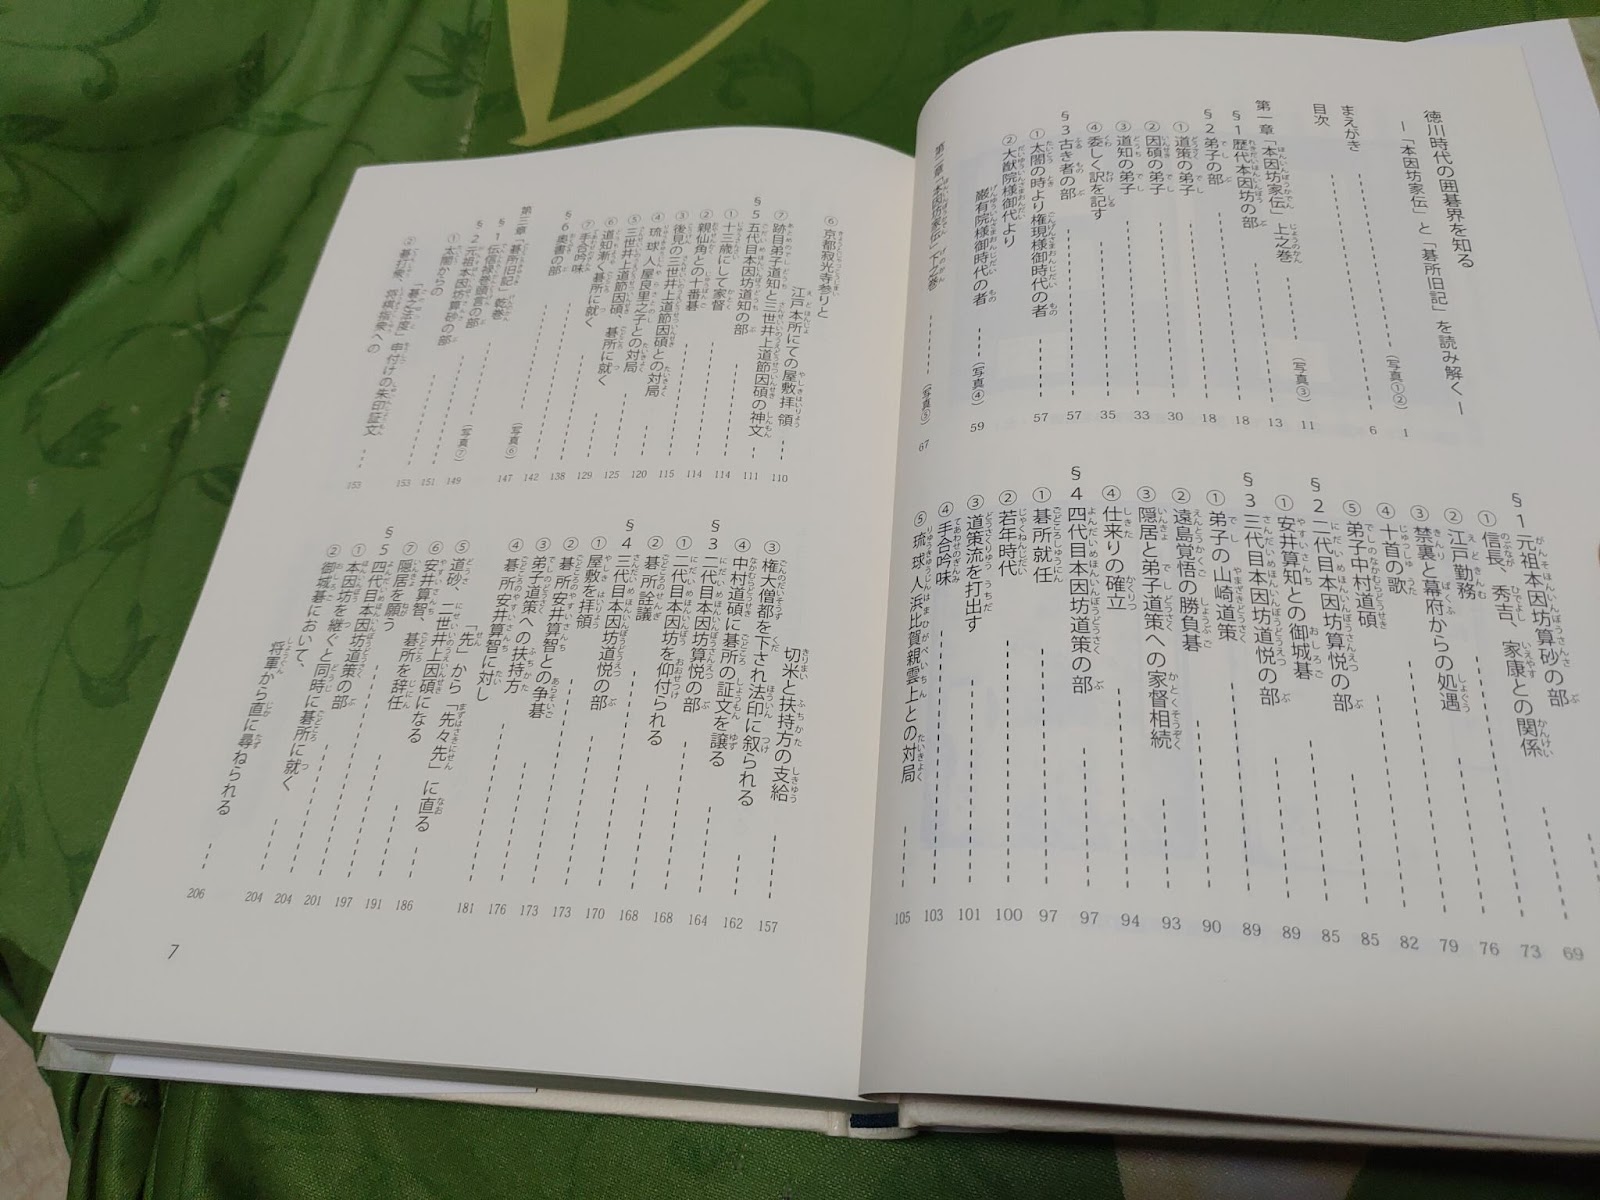 徳川時代の囲碁界を知る
―「本因坊家伝」と「碁所旧記」を読み解く―
1
まえがき (写真①②) 6
目次
第一章「本因坊家伝」上之巻 (写真③) 11
§1歴代本因坊の部 13
§2弟子の部 18
①道策の弟子 18
②因碩の弟子 30
③道知の弟子 33
④委しく訳を記す 35
§3古き者の部 57
①太閤の時より権現様御時代の者 57
②大猷院様御代より
厳有院様御時代の者 (写真④) 59
第二章「本因坊家伝」下之巻 (写真⑤) 67
69
§1元祖本因坊算砂の部 73
①信長、秀吉、家康との関係 76
②江戸勤務 79
③禁裏と幕府からの処遇 82
④十首の歌 85
⑤弟子中村道碩 85
§2二代目本因坊算悦の部 89
①安井算知との御城碁 89
§3三代目本因坊道悦の部 89
①弟子の山崎道策 90
②遠島覚悟の勝負碁 93
③隠居と弟子道策への家督相続 94
④仕来りの確立 97
§4四代目本因坊道策の部 97
①碁所就任 100
②若年時代 101
③道策流を打出す 103
④手合吟味 105
⑤琉球人浜比賀親雲上との対局
⑥京都寂光寺参りと
江戸本所にての屋敷拝領 110
⑦跡目弟子道知と三世井上道節因碩の神文 111
§5五代目本因坊道知の部 114
①十三歳にして家督 114
②親仙角との十番碁 115
③後見の三世井上道節因碩との対局 120
④琉球人屋良里之子との対局 125
⑤三世井上道節因碩、碁所に就く 129
⑥道知漸く碁所に就く 138
⑦手合吟味 142
§6奥書の部
第三章「碁所旧記」乾巻 (写真⑥) 147
§1伝信禄巻頭言の部 (写真⑦) 149
§2元祖本因坊算砂の部 151
①太閤からの
「碁之法度」申付けの朱印証文 153
②碁打衆、将棋指衆への
153
切米と扶持方の支給 157
③権大僧都を下され法印に叙られる 162
④中村道碩に碁所の証文を譲る 164
§3二代目本因坊算悦の部 168
①二代目本因坊を仰付られる 168
②碁所詮議 170
§4三代目本因坊道悦の部 173
①屋敷を拝領 173
②碁所安井算智との争碁 176
③弟子道策への扶持方 181
④碁所安井算智に対し
「先」から「先々先」に直る 186
⑤道砂、二世井上因碩になる 191
⑥安井算智、碁所を辞任 197
⑦隠居を願う 201
§5四代目本因坊道策の部 204
①本因坊を継ぐと同時に碁所に就く 204
②御城碁において、
将軍から直に尋ねられる 206
7